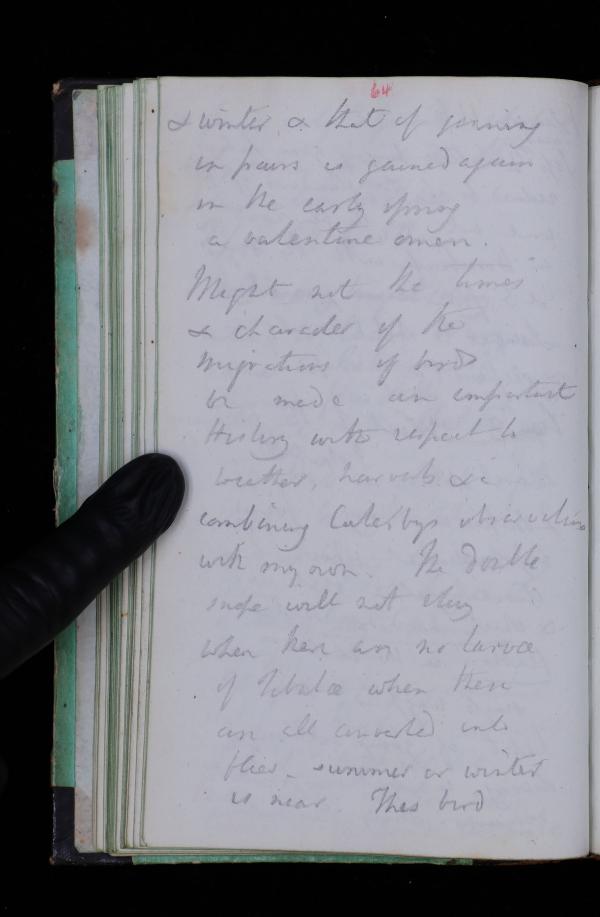 64
& winter & that of joining
in pairs is gained again
in the early spring
a valentine omen.
Might not the times
& character of the
migrations of birds
be made an important
History with respect to
weather, harvests &c
combining Catesbys observations
with my own. The double
snipe will not stay
when there are no larvæ
of Tibulæ when these
are all converted into
flies - summer or winter
is near. This bird